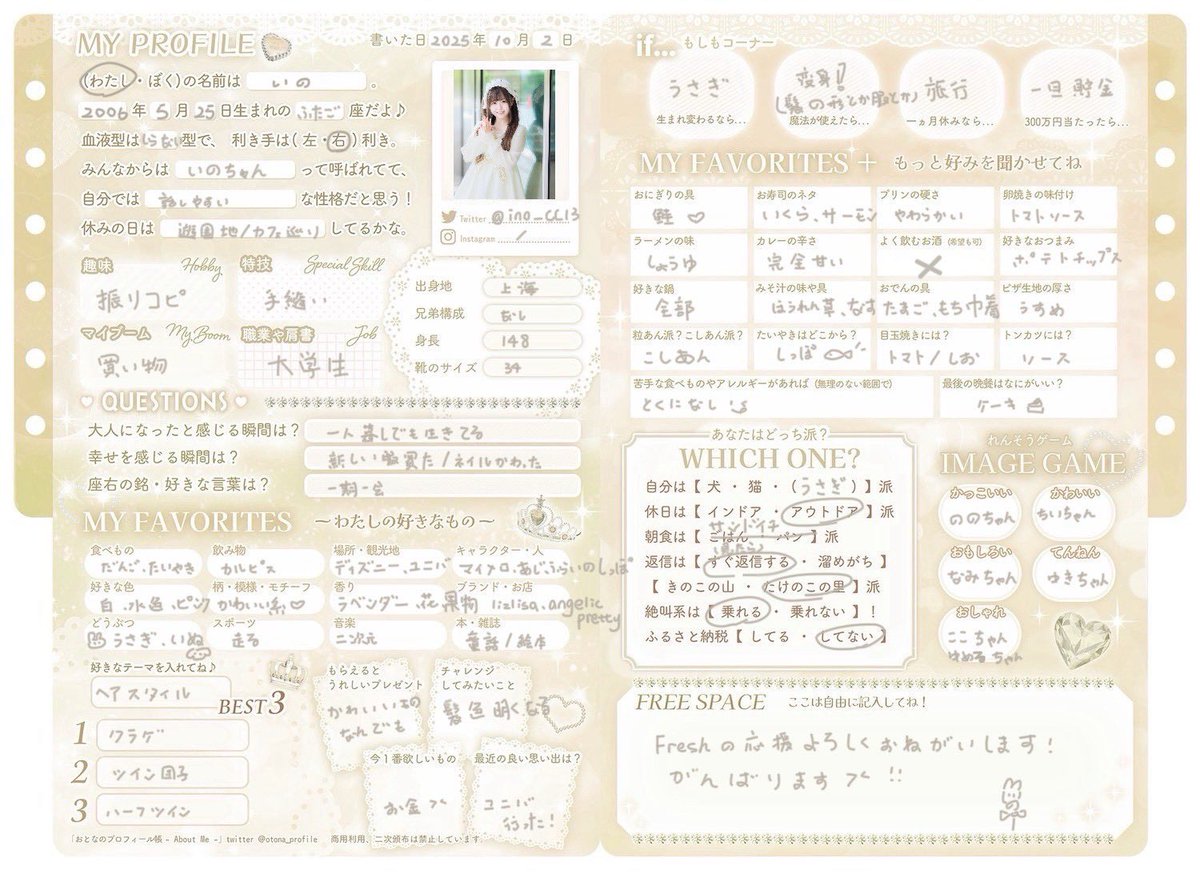 MY PROFILE
書いた日 2025年 10月 2日
(わたし・ぼく)の名前は いの 。
2006年 5月 25日生まれの ふたご 座だよ♪
血液型は しらない 型で、利き手は(左・右)利き。
みんなからは いのちゃん って呼ばれてて、
自分では 話しやすい な性格だと思う!
休みの日は 遊園地/カフェ巡り してるかな。
Twitter @ino_CC13
Instagram /
趣味 Hobby
振りコピ
特技 Special Skill
手縫い
マイブーム My Boom
買い物
職業や肩書 Job
大学生
出身地 上海
兄弟構成 なし
身長 148
靴のサイズ 34
QUESTIONS
大人になったと感じる瞬間は? 一人暮しでも生きてる
幸せを感じる瞬間は? 新しい服買た/ネイルかわった
座右の銘・好きな言葉は? 一期一会
MY FAVORITES 〜わたしの好きなもの〜
食べもの だんご、たいやき
飲み物 カルピス
場所・観光地 ディズニー、ユニバ
キャラクター・人 マイメロ、あじふらいのしっぽ
好きな色 白、水色、ピンク
柄・模様・モチーフ かわいい系♡
香り ラベンダー、花、果物
ブランド・お店 lizlisa、angelic pretty
どうぶつ うさぎ、いぬ
スポーツ 走る
音楽 二次元
本・雑誌 童話/絵本
好きなテーマを入れてね♪
ヘアスタイル
BEST3
1 クラゲ
2 ツイン団子
3 ハーフツイン
もらえると
うれしいプレゼント
かわいいもの
なんでも
チャレンジ
してみたいこと
髪色明くなる
今1番欲しいもの
お金
最近の良い思い出は?
ユニバ
行った!
「おとなのプロフィール帳 - About Me -」twitter @otona_profile 商用利用、二次頒布は禁止しています。
if... もしもコーナー
うさぎ
生まれ変わるなら…
変身!
(髪の形とか服とか)
魔法が使えたら…
旅行
一ヵ月休みなら…
一旦貯金
300万円当たったら…
MY FAVORITES＋ もっと好みを聞かせてね
おにぎりの具 鮭♡
お寿司のネタ いくら、サーモン
プリンの硬さ やわらかい
卵焼きの味付け トマトソース
ラーメンの味 しょうゆ
カレーの辛さ 完全甘い
よく飲むお酒(希望も可) ×
好きなおつまみ ポテトチップス
好きな鍋 全部
みそ汁の味や具 ほうれん草、なす
おでんの具 たまご、もち巾着
ピザ生地の厚さ うすめ
粒あん派?こしあん派? こしあん
たいやきはどこから? しっぽ
目玉焼きには? トマト/しお
トンカツには? ソース
苦手な食べものやアレルギーがあれば(無理のない範囲で) とくになし
最後の晩餐はなにがいい? ケーキ
あなたはどっち派?
WHICH ONE?
自分は【 犬 ・ 猫 ・ (うさぎ) 】派
休日は【 インドア ・ アウトドア 】派
サンドイチ
朝食は【 ごはん ・ パン 】派
(見たら)
返信は【 すぐ返信する ・ 溜めがち 】
【 きのこの山 ・ たけのこの里 】派
絶叫系は【 乗れる ・ 乗れない 】!
ふるさと納税【 してる ・ してない 】
れんそうゲーム
IMAGE GAME
かっこいい ののちゃん
かわいい ちいちゃん
おもしろい なみちゃん
てんねん ゆきちゃん
おしゃれ ここちゃん
ゆめるちゃん
FREE SPACE ここは自由に記入してね!
Freshの応援よろしくおねがいします!
がんばります!!